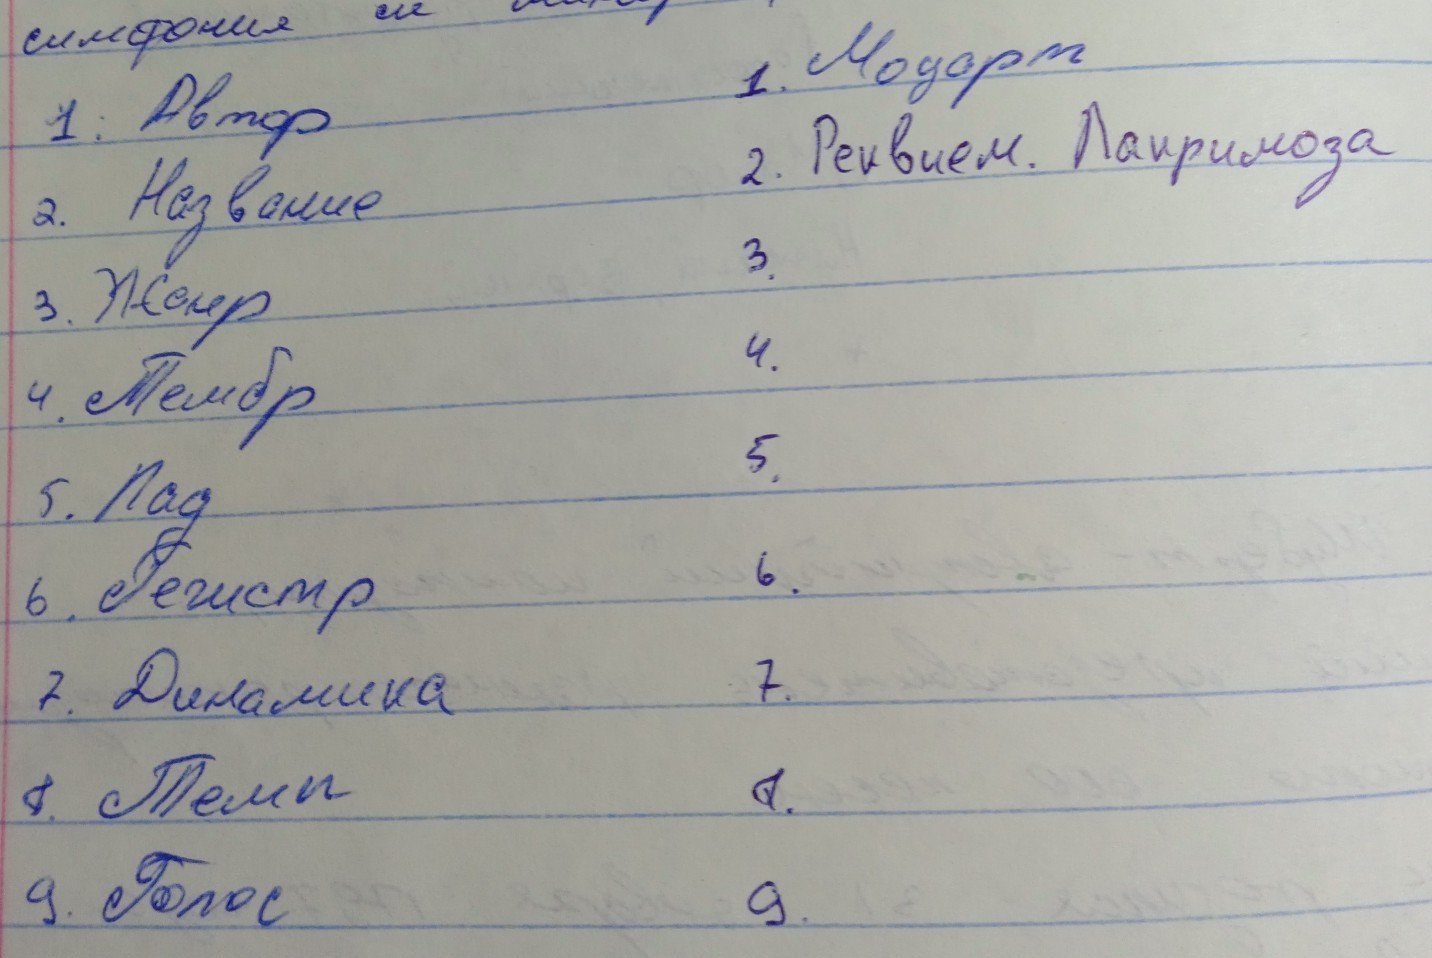 симфония си
1. Автор
2. Название
3. Жанр
4. Тембр
5. Лад
6. Регистр
7. Динамика
8. Темп
9. Голос
1. Моцарт
2. Реквием. Лакримоза
3.
4.
5.
6.
7.
8.
9.